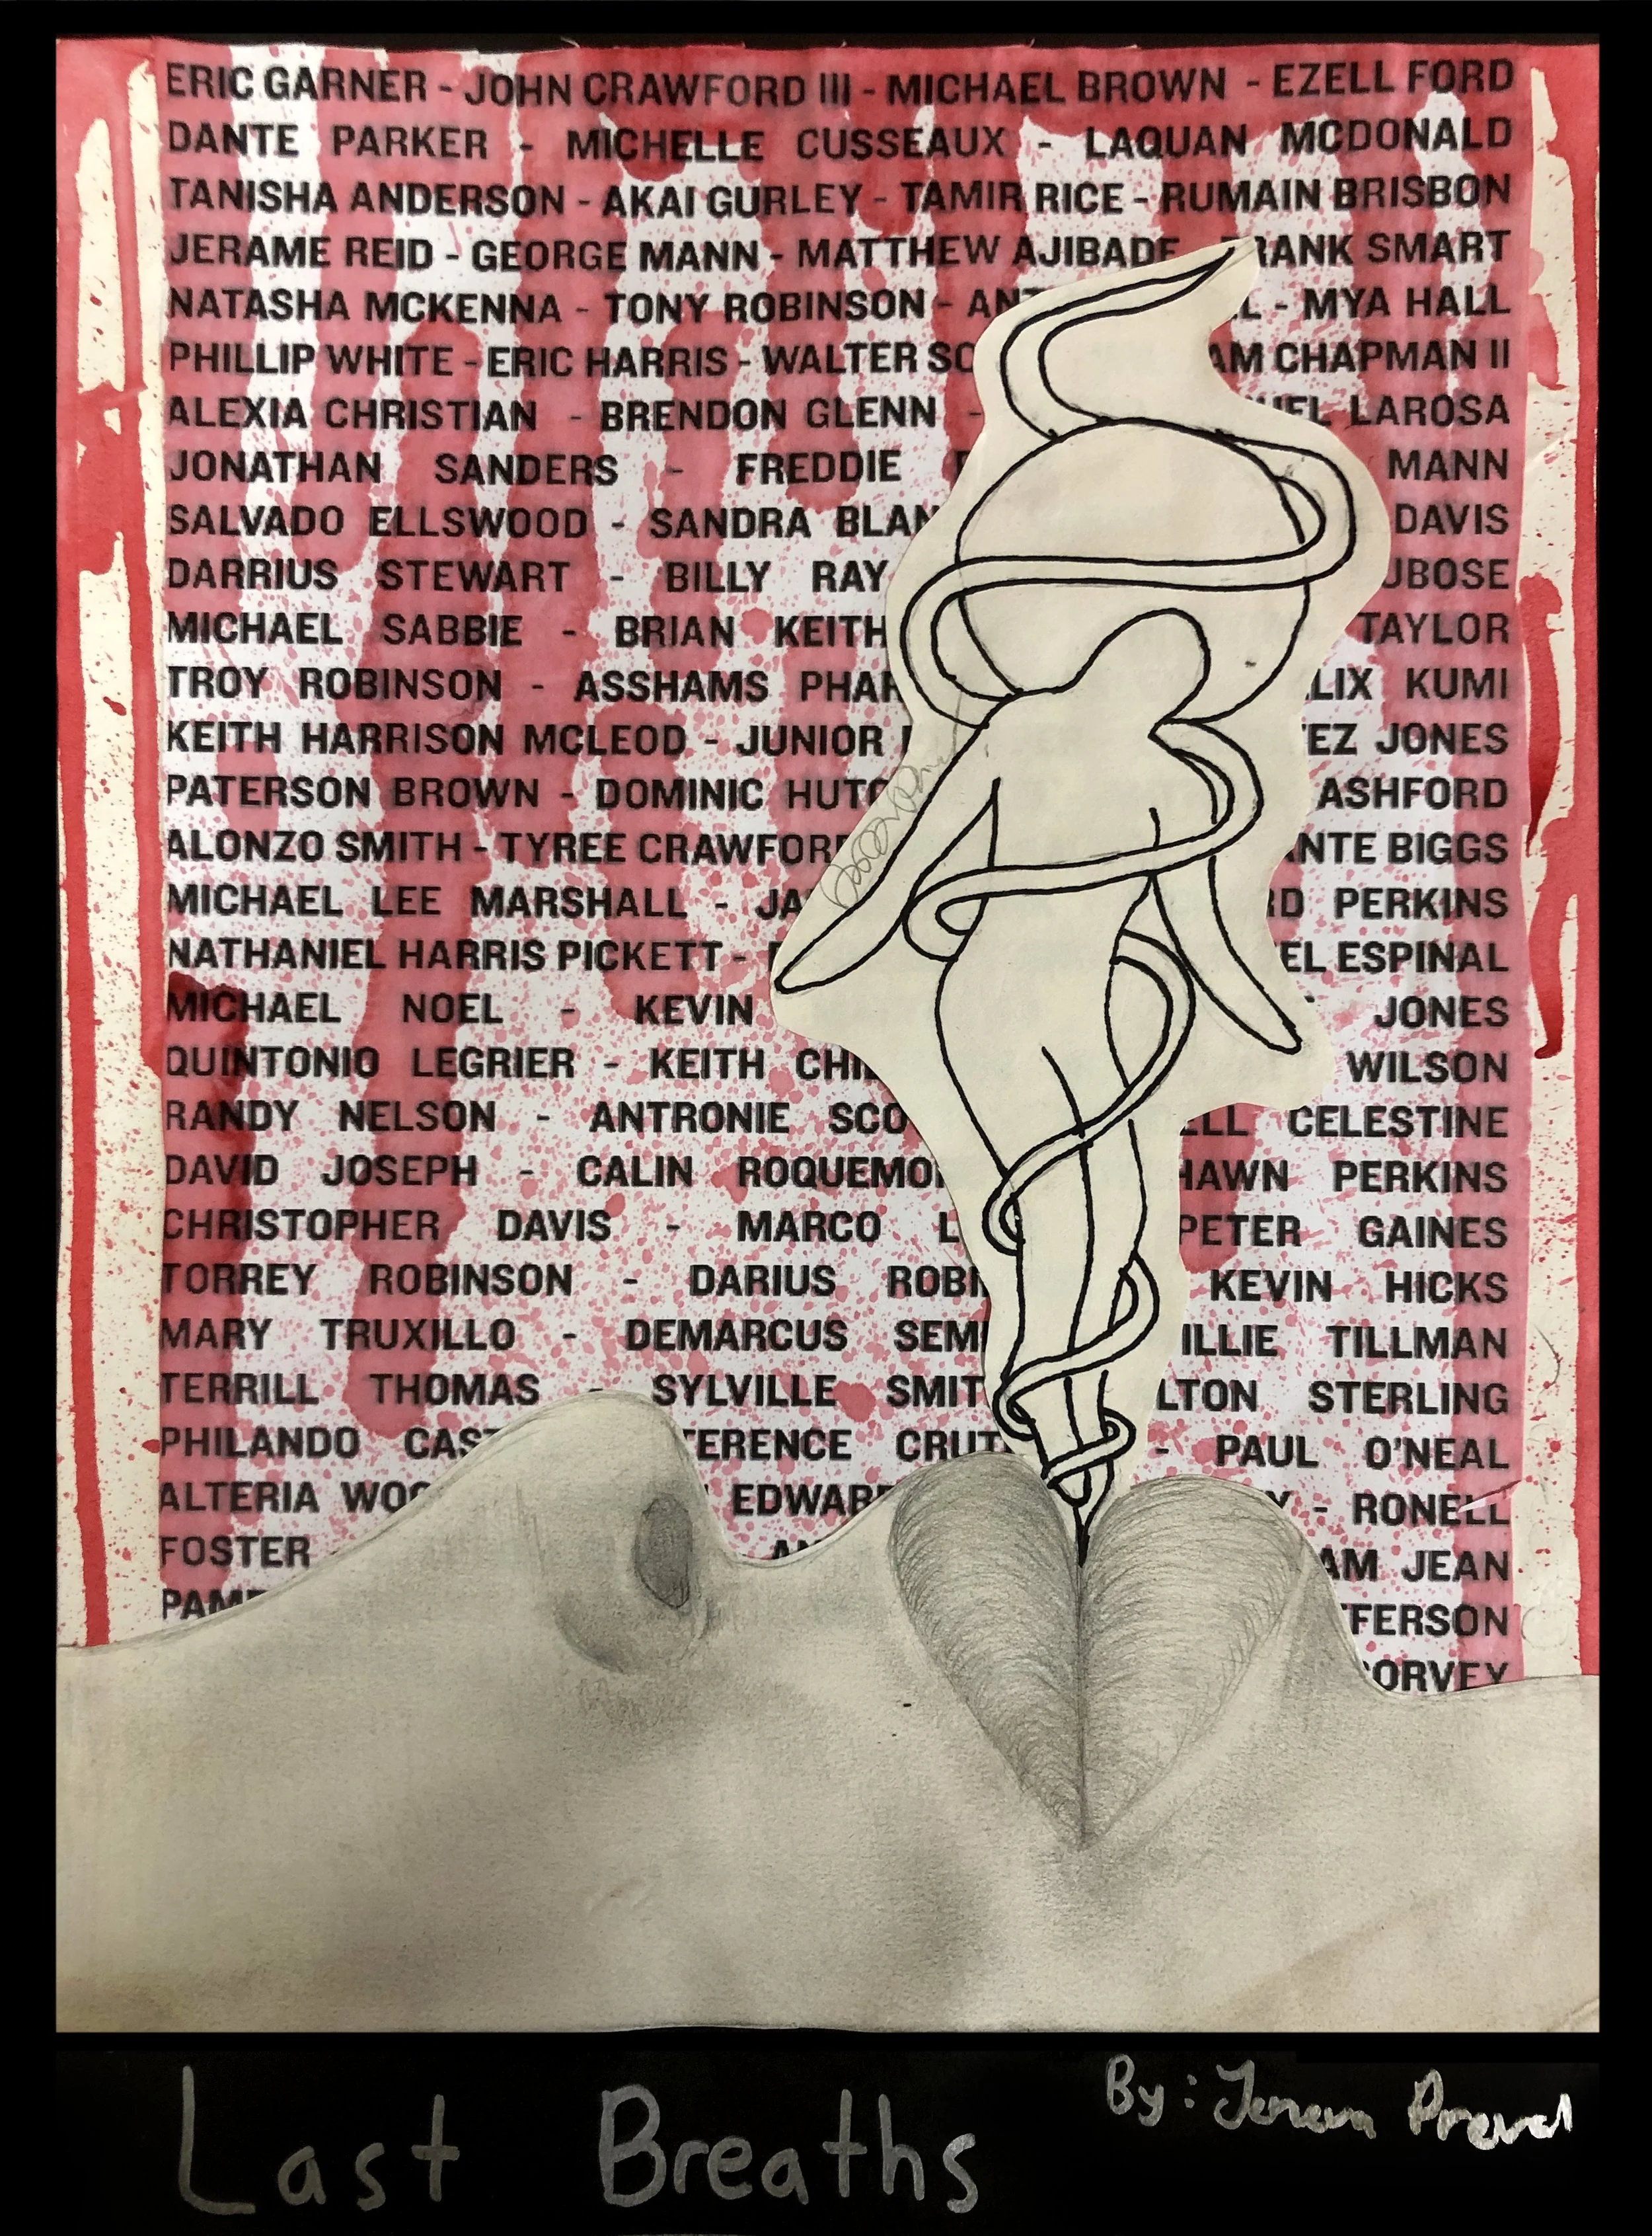 ERIC GARNER - JOHN CRAWFORD III - MICHAEL BROWN - EZELL FORD
DANTE PARKER - MICHELLE CUSSEAUX - LAQUAN MCDONALD
TANISHA ANDERSON - AKAI GURLEY - TAMIR RICE - RUMAIN BRISBON
JERAME REID - GEORGE MANN - MATTHEW AJIBADE RANK SMART
NATASHA MCKENNA - TONY ROBINSON - AN L - MYA HALL
PHILLIP WHITE - ERIC HARRIS - WALTER SC AM CHAPMAN II
ALEXIA CHRISTIAN - BRENDON GLENN - UEL LAROSA
JONATHAN SANDERS - FREDDIE MANN
SALVADO ELLSWOOD - SANDRA BLAN DAVIS
DARRIUS STEWART - BILLY RAY UBOSE
MICHAEL SABBIE - BRIAN KEITH TAYLOR
TROY ROBINSON - ASSHAMS PHAR LIX KUMI
KEITH HARRISON MCLEOD - JUNIOR EZ JONES
PATERSON BROWN - DOMINIC HUTC ASHFORD
ALONZO SMITH - TYREE CRAWFOR NTE BIGGS
MICHAEL LEE MARSHALL - JA RD PERKINS
NATHANIEL HARRIS PICKETT - EL ESPINAL
MICHAEL NOEL - KEVIN JONES
QUINTONIO LEGRIER - KEITH CHI WILSON
RANDY NELSON - ANTRONIE SCO LL CELESTINE
DAVID JOSEPH - CALIN ROQUEMO HAWN PERKINS
CHRISTOPHER DAVIS - MARCO L PETER GAINES
TORREY ROBINSON - DARIUS ROBI KEVIN HICKS
MARY TRUXILLO - DEMARCUS SEM ILLIE TILLMAN
TERRILL THOMAS - SYLVILLE SMIT LTON STERLING
PHILANDO CAS TERENCE CRUT - PAUL O'NEAL
ALTERIA WOO EDWAR Y - RONELL
FOSTER AM JEAN
PAM FFERSON
ORVEY
Last Breaths
By: